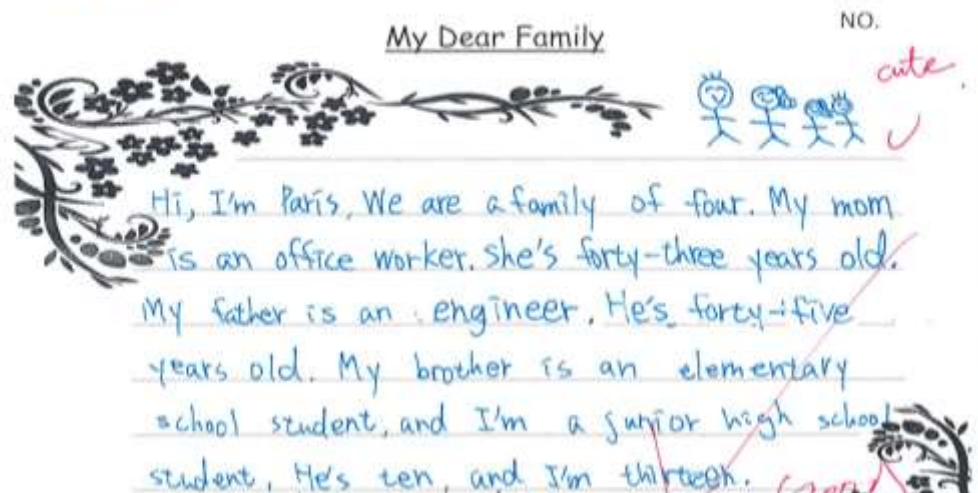 My Dear Family
NO.
cute.
Hi, I'm Paris. We are a family of four. My mom
is an office worker. She's forty-three years old.
My father is an engineer. He's forty-five
years old. My brother is an elementary
school student, and I'm a junior high school
student. He's ten, and I'm thirteen.
Good